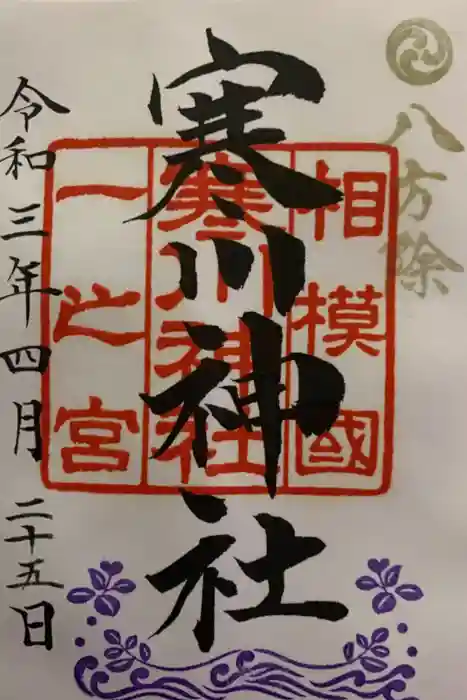 八方除
相模國
寒川神社
一之宮
寒川神社
令和三年四月二十五日